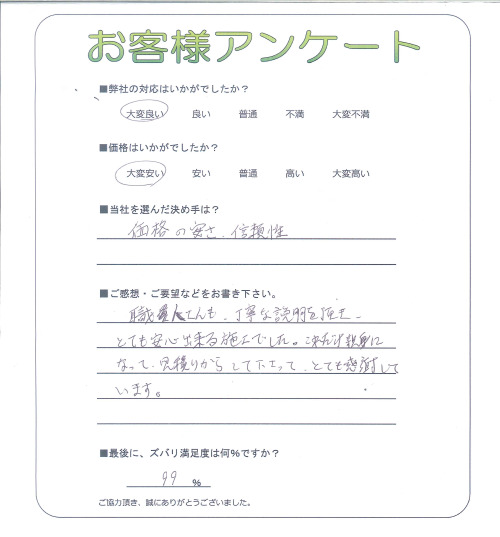 お客様アンケート
■弊社の対応はいかがでしたか？
大変良い 良い 普通 不満 大変不満
■価格はいかがでしたか？
大変安い 安い 普通 高い 大変高い
■当社を選んだ決め手は？
価格の安さ、信頼性
■ご感想・ご要望などをお書き下さい。
職人さんも、丁寧な説明を頂き、
とても安心出来る施工でした。これだけ親身に
なって、見積りからして下さって、とても感謝して
います。
■最後に、ズバリ満足度は何%ですか？
99 %
ご協力頂き、誠にありがとうございました。